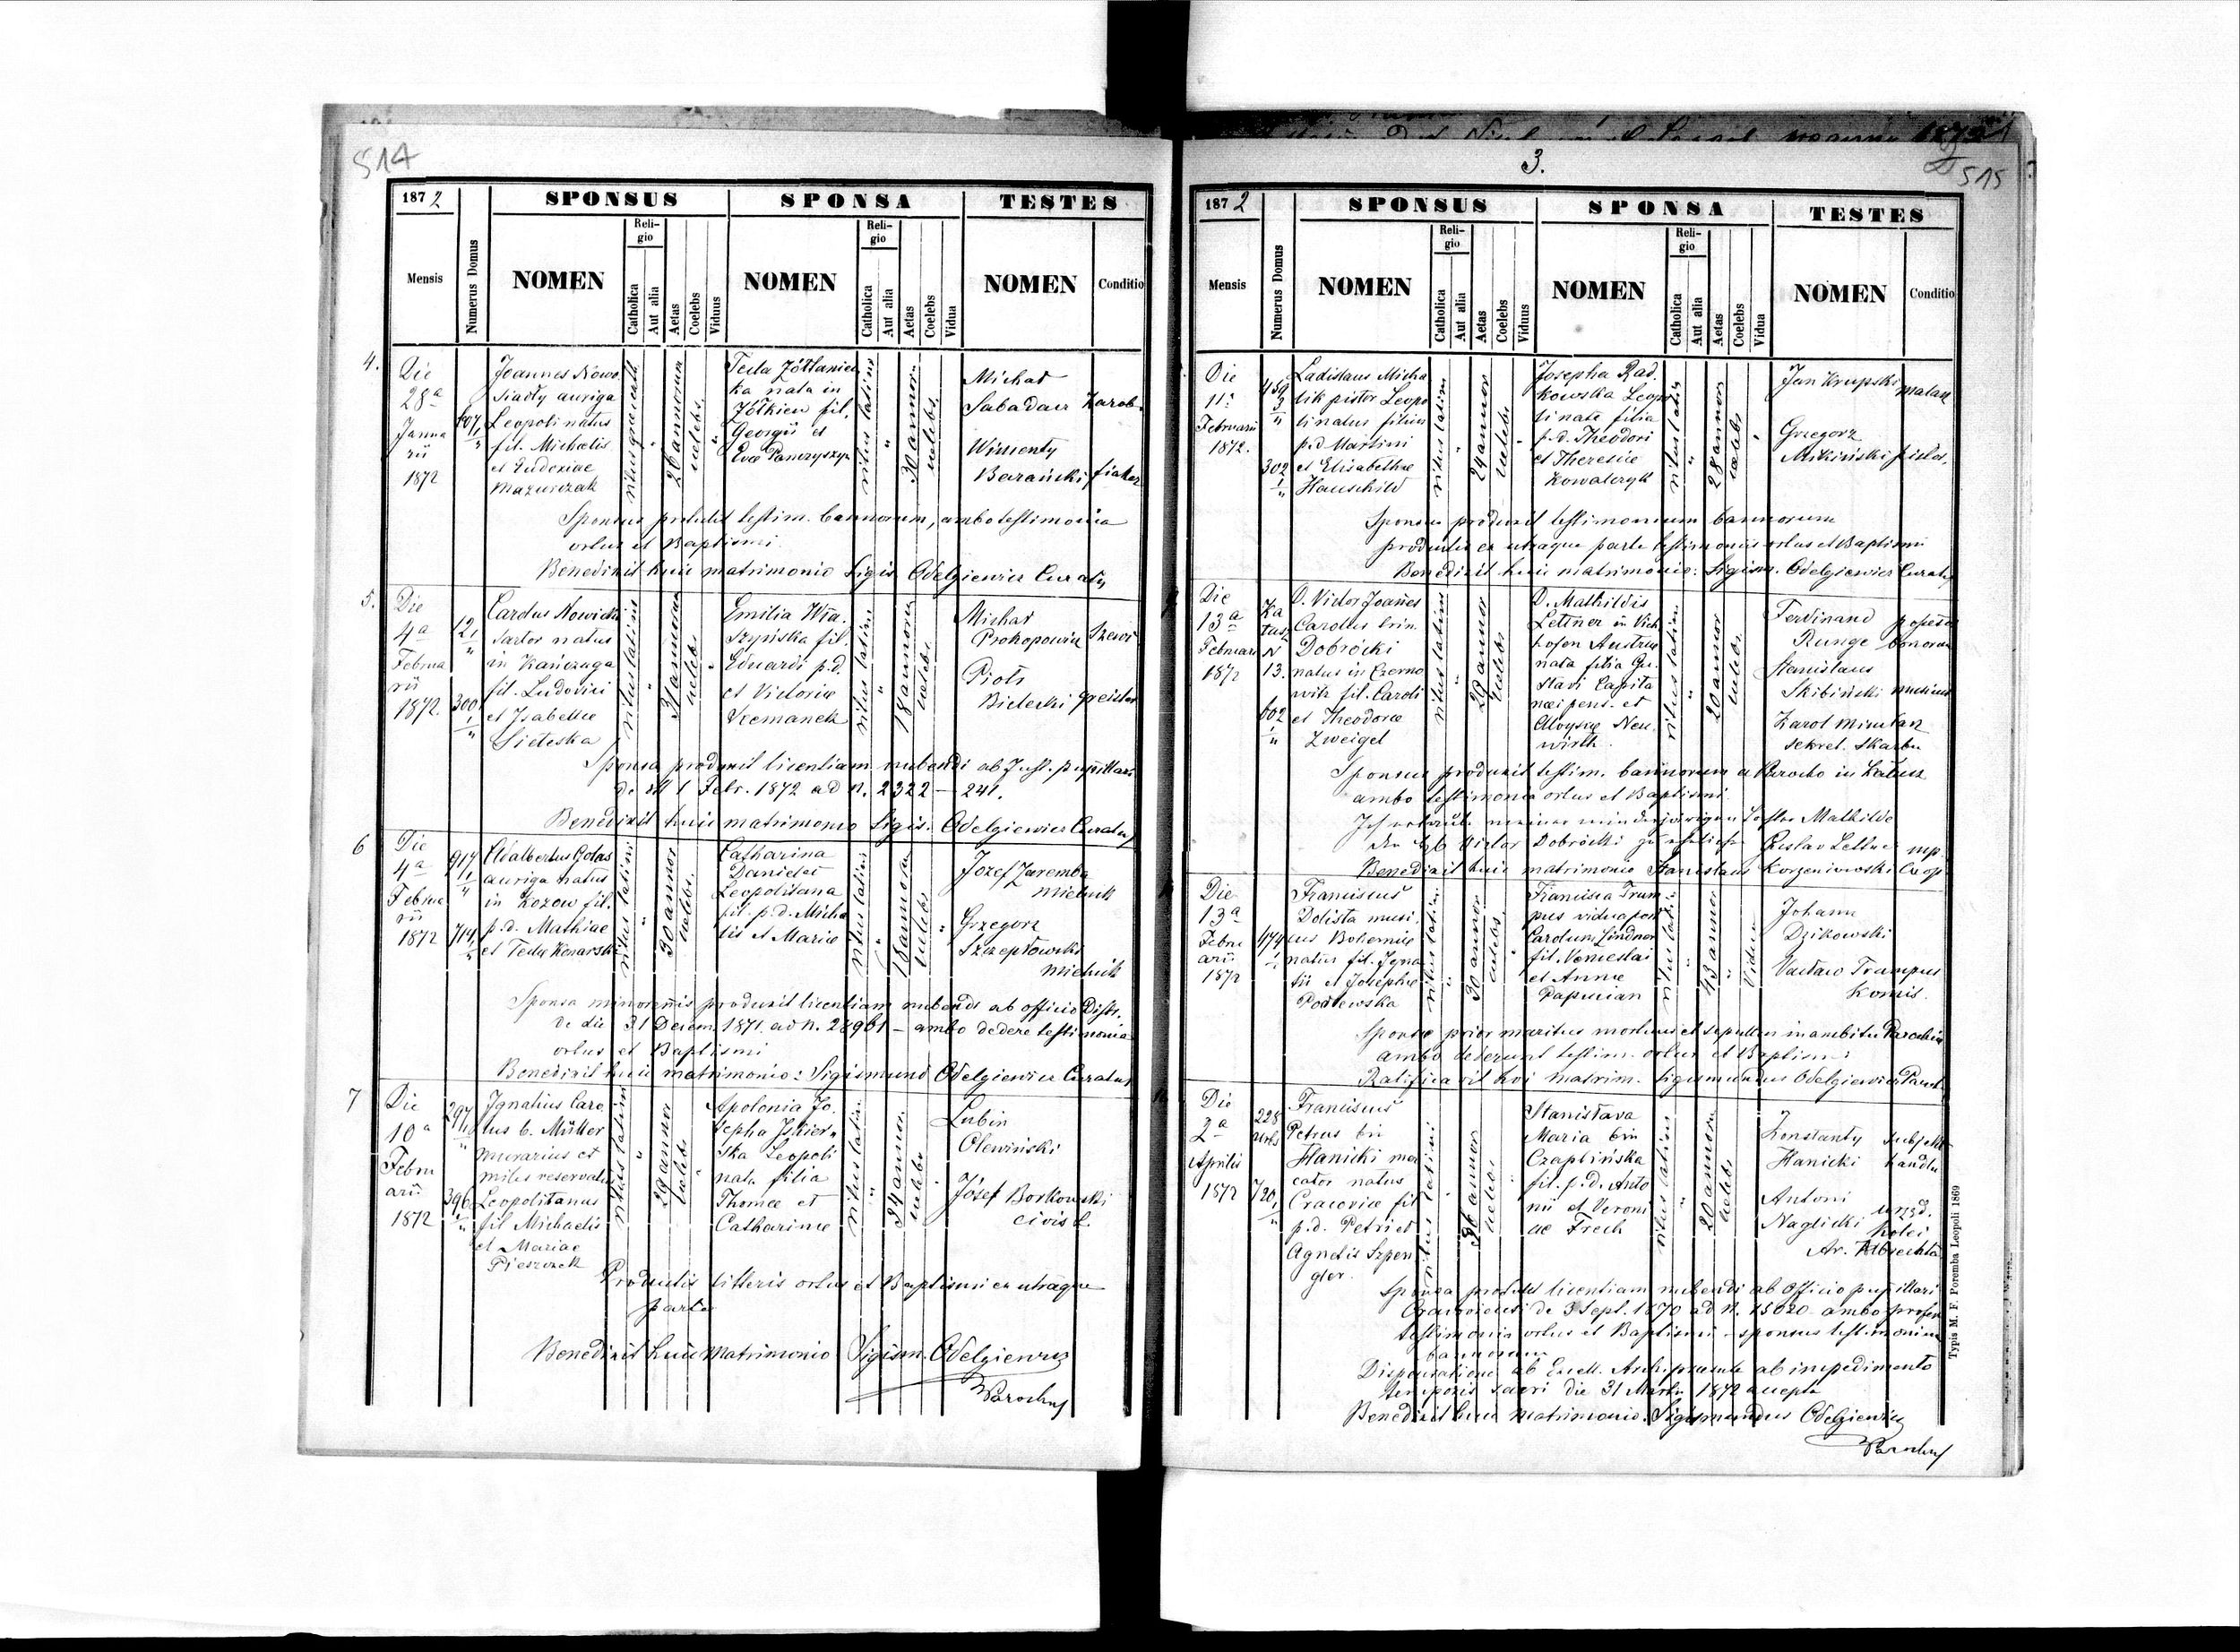 514
1872
SPONSUS
SPONSA
TESTES
Mensis
Numerus Domus
NOMEN
Religio
Catholica
Aut alia
Aetas
Coelebs
Viduus
NOMEN
Religio
Catholica
Aut alia
Aetas
Coelebs
Vidua
NOMEN
Conditio
4.
Die
28a
Janua
rii
1872
607
Joannes Nowo
siadły auriga
Leopoli natus
fil. Michaelis
et Eudoxiae
Mazurczak
26 annorum
coelebs
Tecla Żółtaniec
ka nata in
Żółkiew fil.
Georgii et
Evae Panczyszyn
ritus latini
30 annorum
coelebs
Michał
Sabadasz Zarob.
Wincenty
Barański fiaker
Sponsus protulit testim. bannorum, ambo testimonia
ortus et Baptismi
Benedixit huic matrimonio Sigis. Odelgiewicz Curatus
5.
Die
4a
Februa
rii
1872.
12
300
Carolus Nowicki
sartor natus
in Kańczuga
fil. Ludovici
et Isabellae
Sieteska
ritus latini
31 annorum
coelebs
Emilia Wra.
szyńska fil.
Eduardi p.d.
et Victoriae
Szemanek
ritus latini
18 annorum
coelebs
Michał
Prokopowicz Szewc
Piotr
Bielecki
Sponsa produxit licentiam nubendi ab Just. pupillari
de dtt 1 Febr. 1872 ad N. 2322 — 241.
Benedixit huic matrimonio Sigis. Odelgiewicz Curatus
6
Die
4a
Februa
rii
1872
917
714
Adalbertus Golas
auriga natus
in Kozow fil.
p.d. Mathiae
et Teclae Konarska
ritus latini
30 annor
coelebs
Catharina
Danielei
Leopolitana
fil. p.d. Micha
lis et Mariae
ritus latini
18 annor
coelebs
Jozef Zaremba
mielnik
Grzegorz
Szczepłowski
mielnik
Sponsa minorennis produxit licentiam nubendi ab officio Distr.
de die 31 Decem. 1871 ad N. 28961 — ambo dedere testimonia
ortus et Baptismi
Benedixit huic matrimonio: Sigismund Odelgiewicz Curatus
7
Die
10a
Febru
arii
1872
297
396
Ignatius Caro
lus b. Müller
murarius et
miles reservatus
Leopolitanus
fil Michaelis
et Mariae
Pieszczek
ritus latini
29 annor
coelebs
Apolonia Jo.
sepha Iskier
ska Leopoli
nata filia
Thomae et
Catharinae
ritus latini
24 annor
coelebs
Lubin
Olewiński
Józef Borkowski
civis L.
Productis litteris ortus et Baptismi ex utraque
parte
Benedixit huic Matrimonio Sigism. Odelgiewicz
Parochus
3.
515
1872
SPONSUS
SPONSA
TESTES
Mensis
Numerus Domus
NOMEN
Religio
Catholica
Aut alia
Aetas
Coelebs
Viduus
NOMEN
Religio
Catholica
Aut alia
Aetas
Coelebs
Vidua
NOMEN
Conditio
Die
11a
Februarii
1872.
459
302
Ladislaus Micha
lik pistor Leopo
li natus filius
p.d. Martini
et Elisabethae
Hauschild
ritus latini
24 annor
coelebs
Josepha Rad.
kowska Leopo
li nata filia
p.d. Theodori
et Theresiae
Kowalczyk
ritus latini
28 annor
coelebs
Jan Krupski
Grzegorz
Mikiński pistor
Sponsus produxit testimonium bannorum
productis ex utraque parte testimoniis ortus et Baptismi
Benedixit huic matrimonio: Sigism. Odelgiewicz Curatus
Die
13a
Februarii
1872
Ka
łusz
N
13.
602
D. Victor Joannes
Carolus trin.
Dobrócki
natus in Czerno
witz fil. Caroli
et Theodorae
Zweigel
ritus latini
29 annor
coelebs
D. Mathildis
Lettner in Vich
hofen Austria
nata filia Gu.
stavi Capita
nei pens. et
Aloysiae Neu
wirth
ritus latini
20 annor
coelebs
Ferdinand
Runge
possessor
bonorum
Stanislaus
Skibiński
Karol
sekret. skarbu
Sponsus produxit testim. bannorum a Parocho in Kałusz
ambo testimonia ortus et Baptismi
Ich erlaube meiner minderjährigen Tochter Mathilde
den Victor Dobrócki zu ehelichen Gustav Lettner mp.
Benedixit huic matrimonio Stanislaus Korzeniowski Coop.
Die
13a
Febru
arii
1872
474
Franciscus
Dolista musi.
cus Bohemiae
natus fil. Igna
tii et Josephae
ritus latini
30 annor
coelebs
Francisca Trum
pus vidua post
Carolum Lindner
fil. Venceslai
et Annae
Papuzian
ritus latini
43 annor
Vidua
Johann
Dzikowski
Wacław Trumpus
Komis.
Sponsae prior maritus mortuus et sepultus in ambitu Parochiae
ambo dederunt testim. ortus et Baptismi
Ratificavit hoi matrim. Sigismundus Odelgiewicz Paroch
Die
2a
Aprilis
1872
228
urbs
720
Franciscus
Petrus bin
Hanicki mer
cator natus
Cracoviae fil
p.d. Petri et
Agnetis Szpen
gler.
ritus latini
36 annor
coelebs
Stanisława
Maria bin
Czaplińska
fil. p.d. Anto
nii et Veroni
cae Frech
ritus latini
20 annor
coelebs
Konstanty
Hanicki
subjekt
handlu
Antoni
Naglicki
urzęd.
kolei
Ar. Albrechta
Sponsa protulit licentiam nubendi ab officio pupillari
de 3 Sept. 1870 ad N. 15020 ambo
testimonia ortus et Baptismi – sponsus testimonium
bannorum
Dispensatione ab Excell. Archipraesule ab impedimento
temporis sacri die 31 Martii 1872 accepta
Benedixit huic Matrimonio. Sigismundus Odelgiewicz
Parochus
Typis M. F. Poremba Leopoli 1869